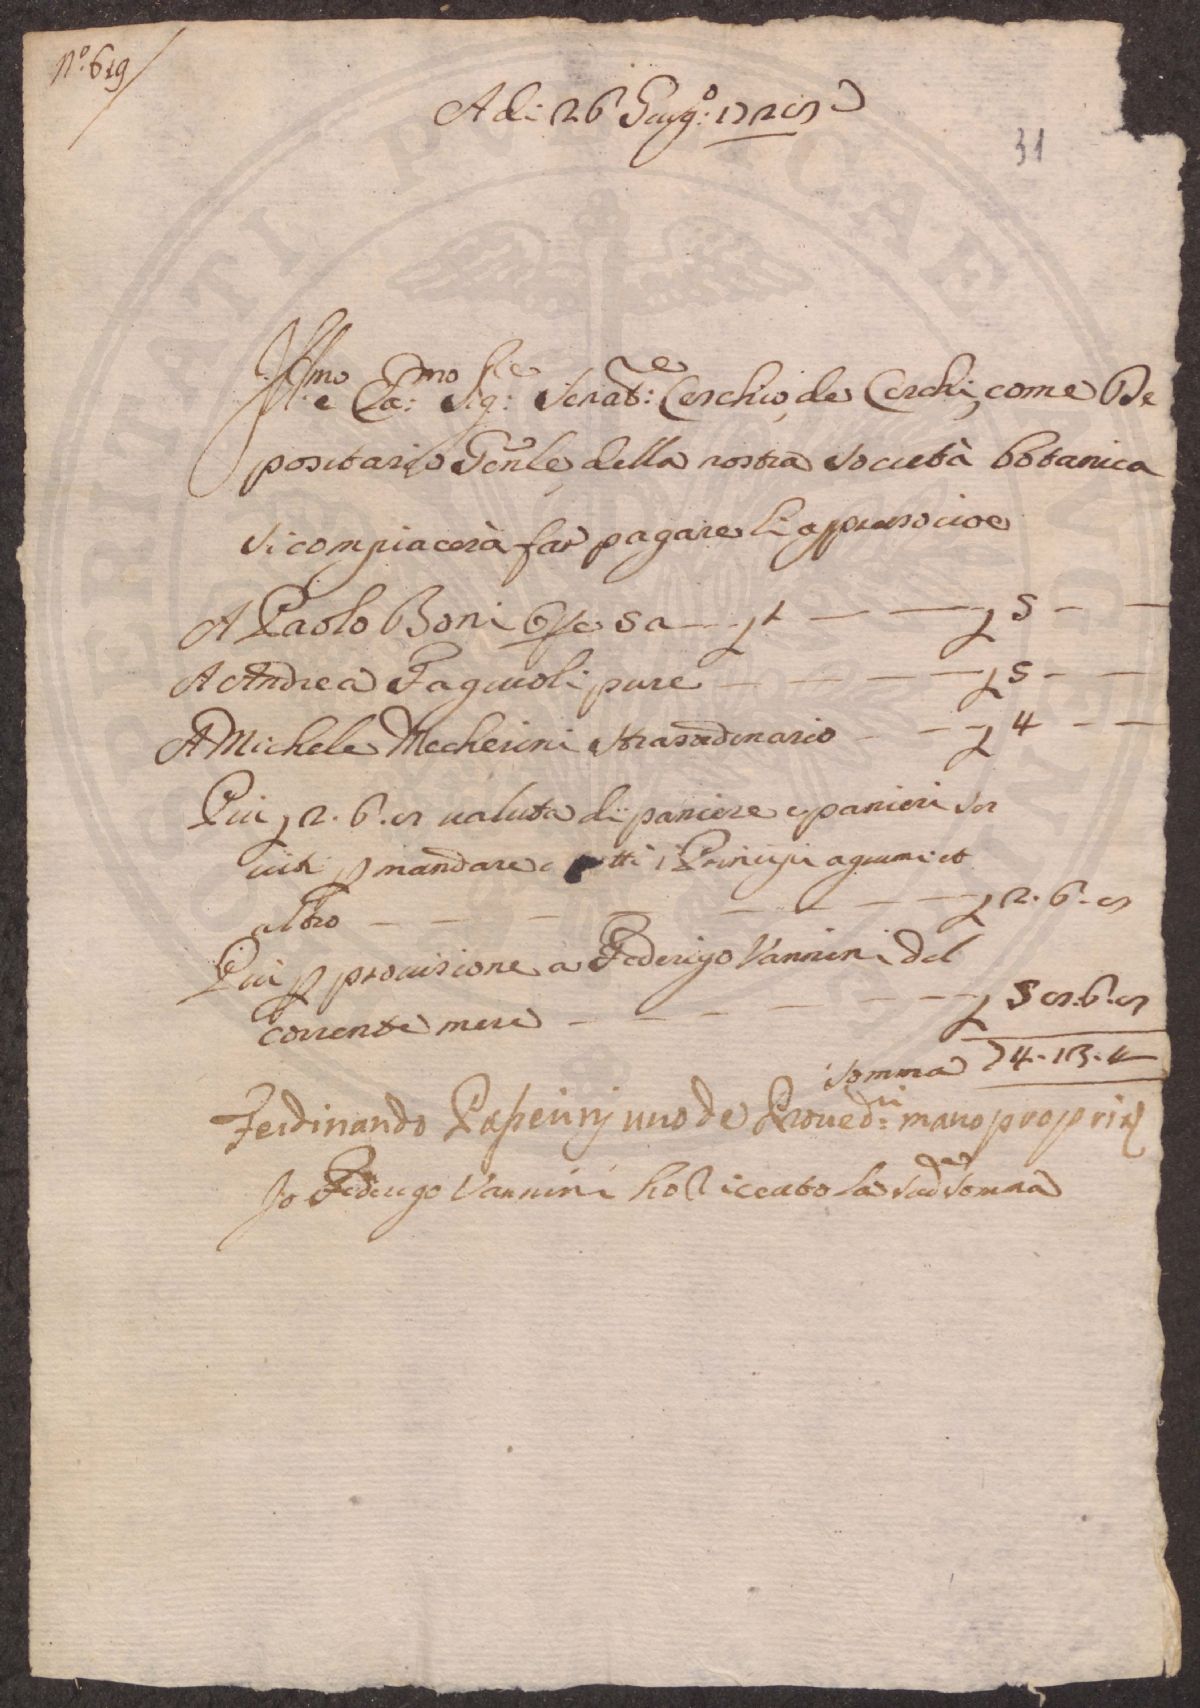 N.º 619
A di 26 Giug.º 1728
31
Ill.mo e Cla.mo Sig.re Senat.re Cerchio de Cerchi, come De
positario Gen.le della nostra Società botanica
si compiacerà far pagare li appresso cioe
A Paolo Boni Opre 5 a £ 1 — — £ 5 — —
A Andrea Fagiuoli pure — — — — £ 5 — —
A Michele Mecherini strasordinario — — £ 4 — —
Piu £ 2. 6. 8 valuta di paniere e panieri ser
viti p mandare a tti i Principi agrumi et
altro — — — — — — — £ 2. 6. 8
Piu p provisione a Federigo Vannini del
corrente mese — — — — — £ 58. 6. 8
Somma 74. 13. 4
Ferdinando uno de Proved:ri mano propria
Io Federigo Vannini ho riceuto la sud.a somma